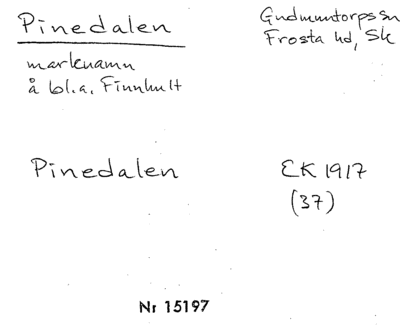 Pinedalen
Gudmuntorps sn
Frosta hd, Sk
marknamn
å bl.a. Finnhult
Pinedalen
EK 1917
(37)
Nr 15197